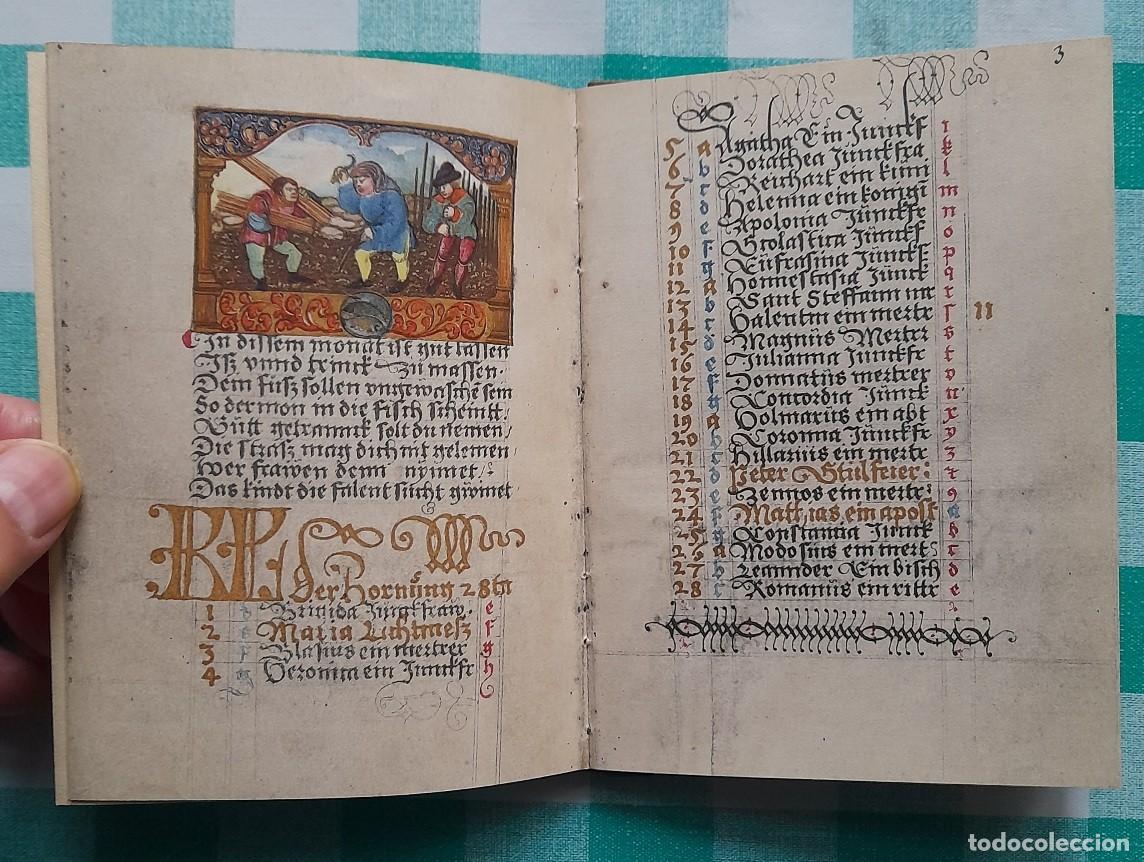 In dissem monat ist gut lassen
Isz unnd trinck zu massen.
Dem füsz sollen ungewasche sein
So der mon in die fisch scheintt.
Gutt getrannck solt du nemen
Die strasz mag dich nit gelemen
Wer frawen denn nymet
Das kindt die falent sucht gwinet
KL
Der Hornüng 28 tag
1 d Brigida Jungkfraw. e
2 e Maria Lichtmesz f
3 f Blasius ein mertrer g
4 g Veronica ein Junckfr h
3
5 a Agatha Ein Junckf i
6 b Dorathea Junckfra k
7 c Reichart ein küni l
8 d Helenna ein konigi m
9 e Apolonia Junckfr n
10 f Scolastica Junckf o
11 g Eüfrasina Junckf p
12 a Honnestasia Junck q
13 b Sant Steffann r
14 c Valentin ein mertr s 11
15 d Magnüs Mertrer
16 e Julianna Junckfr t
17 f Donnatüs mertrer v
18 g Concordia Junck x
19 a Volmarüs ein abt y
20 b Corona Junckfr z
21 c Hillarius ein mertr
22 d Peter Stülfeier:
23 e Zennos ein mertr: a
24 f Mattias ein apost b
25 g Constantia Junck
26 a Modosüs ein mert c
27 b Leannder Ein bisch d
28 c Romanüs ein rittr e
todocoleccion